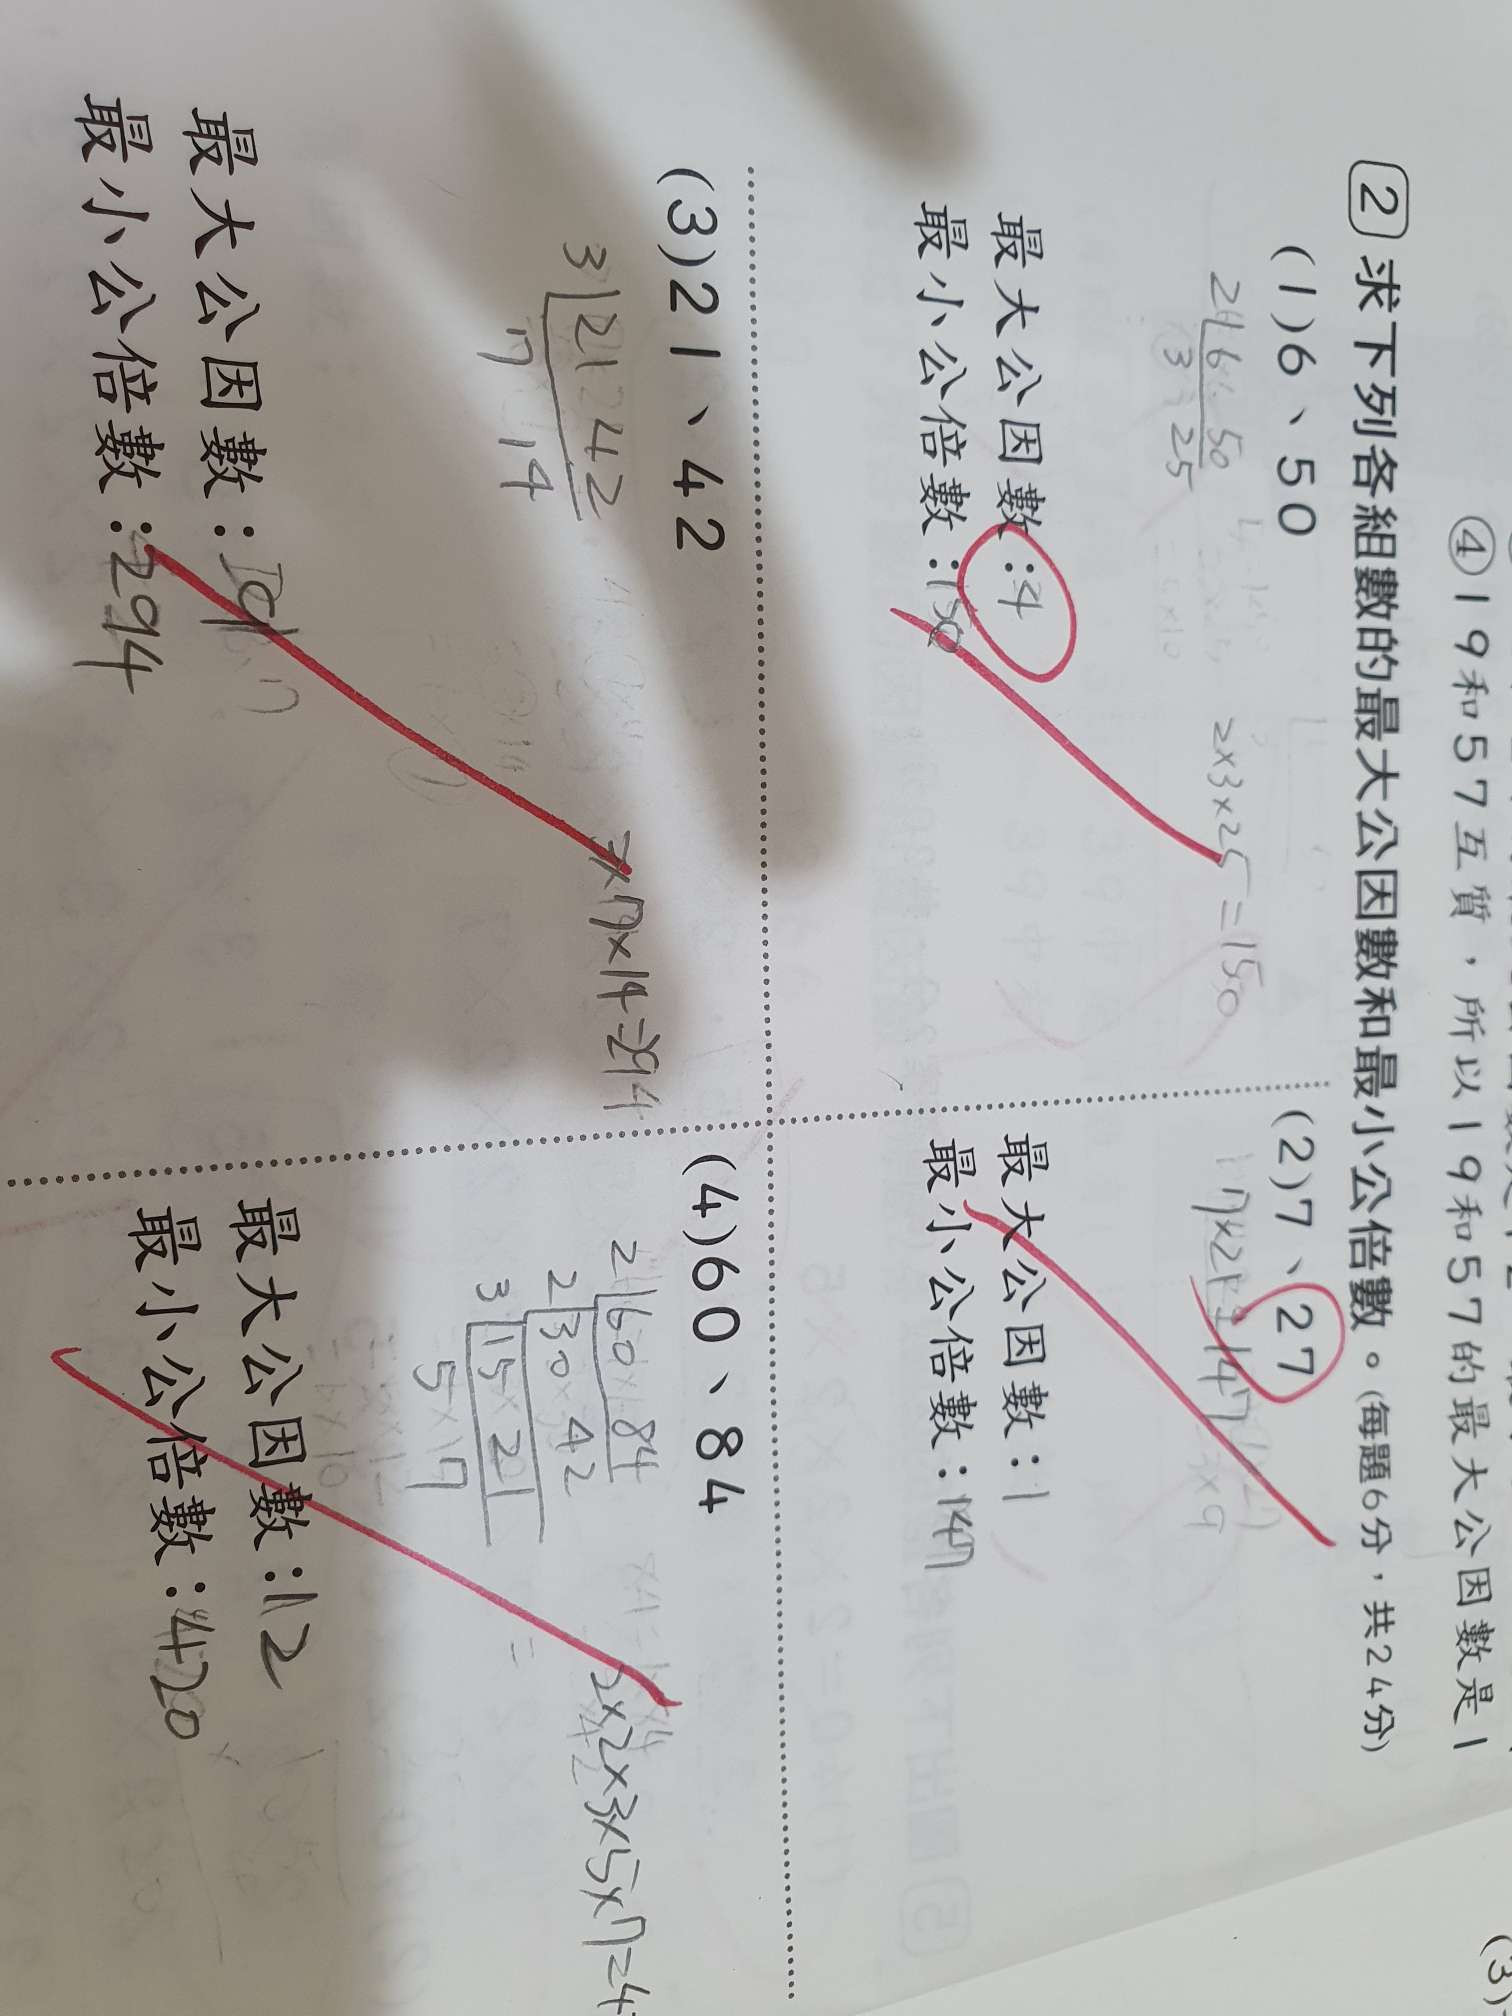 ④19和57互質，所以19和57的最大公因數是1
2 求下列各組數的最大公因數和最小公倍數。(每題6分，共24分)
(1)6、50
2 6 50
3 25
2×3×25=150
最大公因數：4
最小公倍數：150
(2)7、27
7×21=147
最大公因數：1
最小公倍數：147
(3)21、42
3 21 42
7 14
×7×14=294
最大公因數：
最小公倍數：294
(4)60、84
2 60 84
2 30 42
3 15 21
5×7
2×2×3×5×7=4
最大公因數：12
最小公倍數：420
(3)